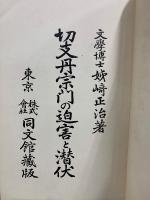 文學博士姉崎正治著
切支丹宗門の迫害と潜伏
東京 株式會社 同文館藏版